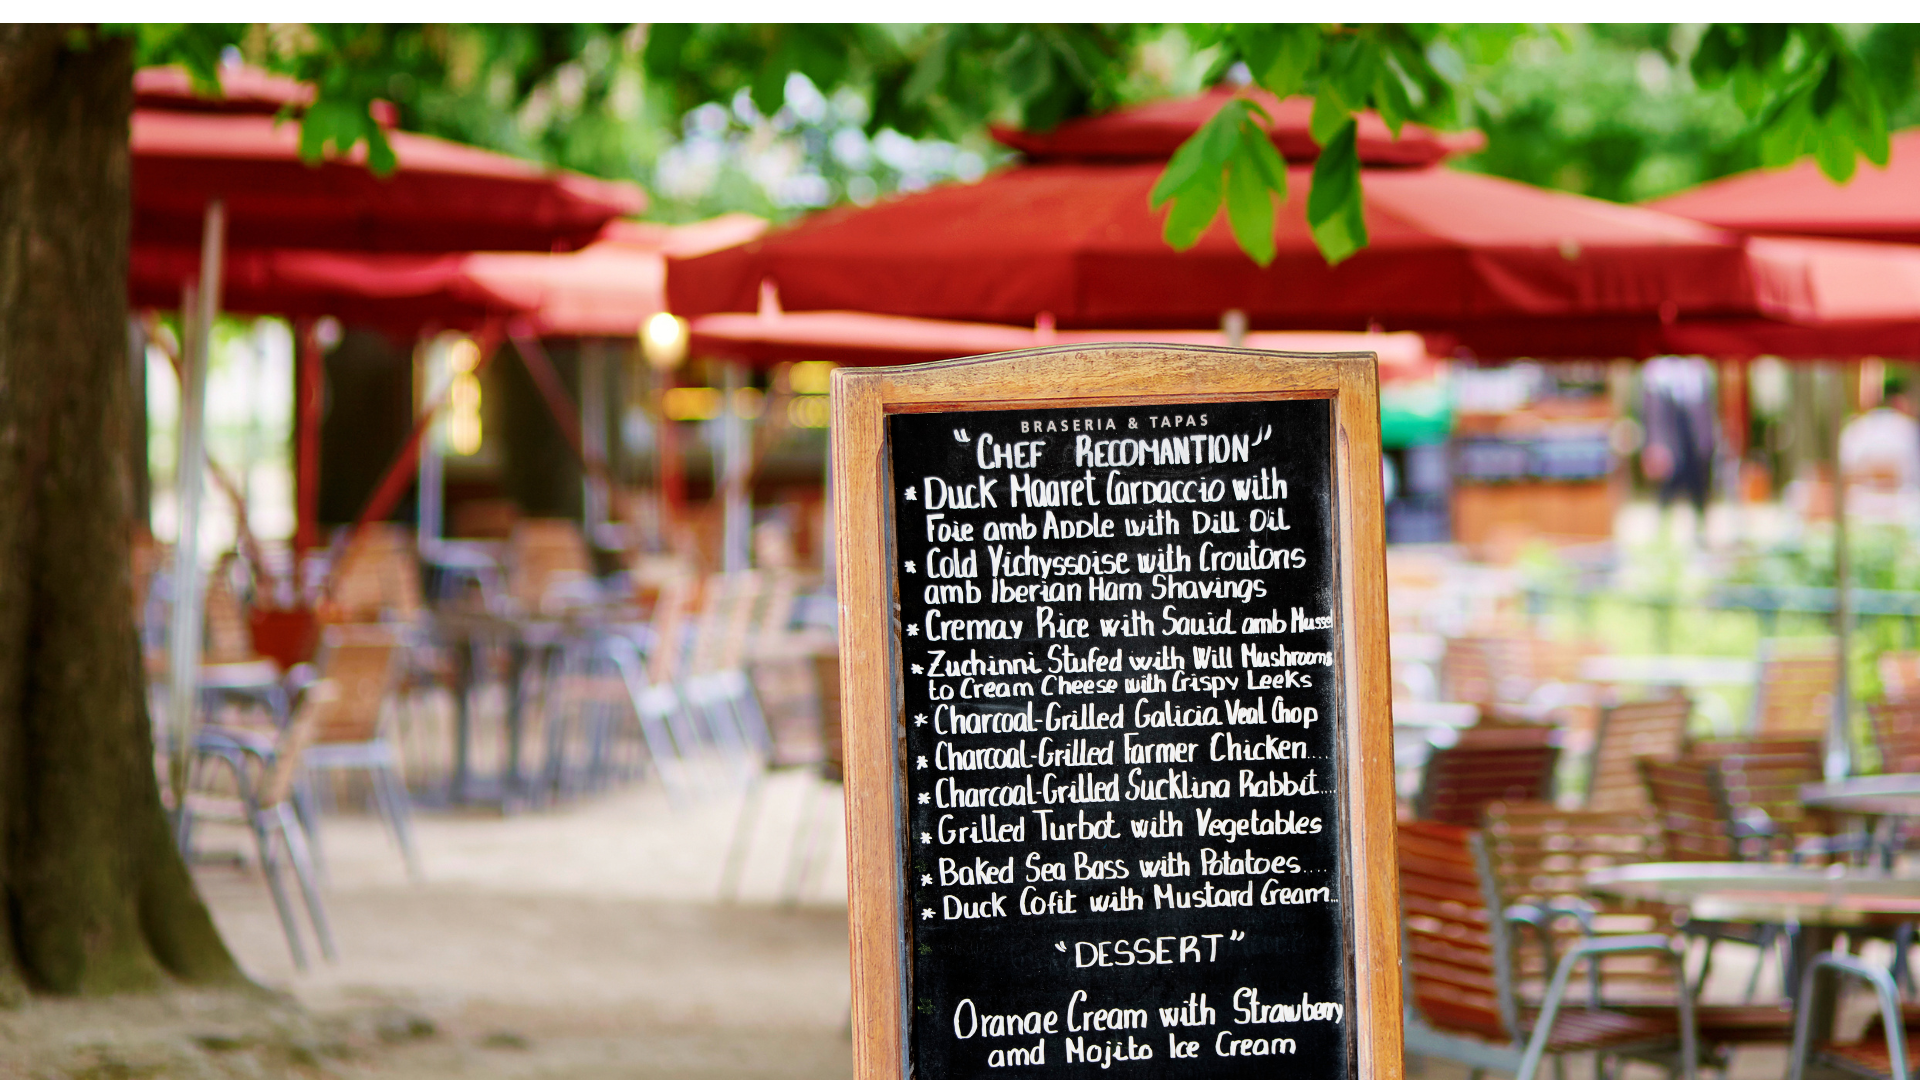 BRASERIA & TAPAS
"CHEF RECOMANTION"
* Duck Magret Carpaccio with
Foie amb Apple with Dill Oil
* Cold Vichyssoise with Croutons
amb Iberian Ham Shavings
* Cremay Rice with Squid amb Mussel
* Zuchinni Stufed with Will Mushrooms
to Cream Cheese with Crispy Leeks
* Charcoal-Grilled Galicia Veal Chop
* Charcoal-Grilled Farmer Chicken....
* Charcoal-Grilled Suckling Rabbit....
* Grilled Turbot with Vegetables
* Baked Sea Bass with Potatoes....
* Duck Cofit with Mustard Cream...
"DESSERT"
Orange Cream with Strawberry
amd Mojito Ice Cream